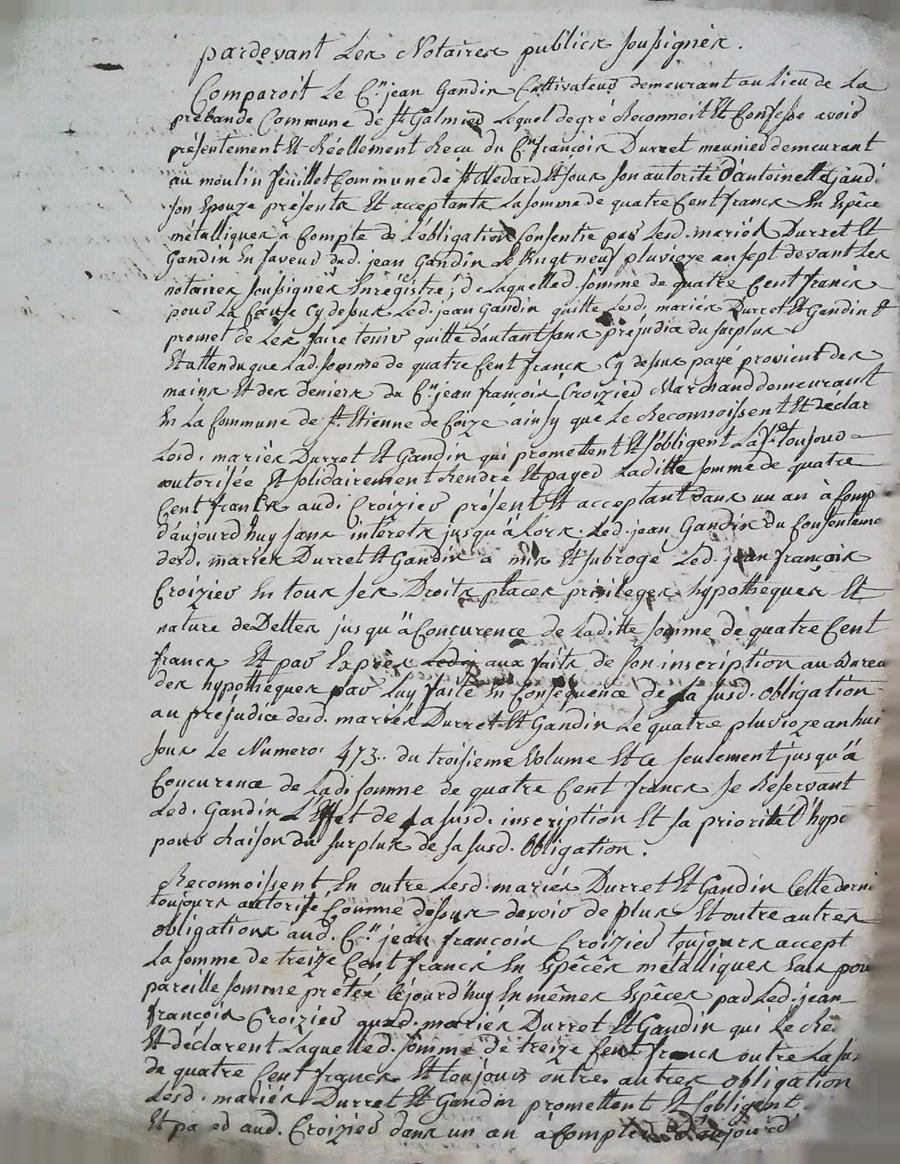 pardevant Les Notaires publics soussignés.
Comparoit Le C.en jean Gandin Cultivateur demeurant au Lieu de La
prébande Commune de St Galmier Lequel de gré Reconnoit Et Confesse avoir
présentement Et Réellement Recu du C.en françois Durret meunier demeurant
au moulin feuillet Commune de St Medard Et sous son autorité d'antoinette gandi
son Epouze présents Et acceptants La somme de quatre Cent francs En Espèce
métalliques à Compte de L'obligation Consentie par Lesd. mariés Durret Et
Gandin En faveur dud. jean Gandin Le vingt neuf pluvioze an sept devant Les
notaires soussignés Enregistré; de Laquelle d. somme de quatre Cent francs
pour La Cause Cy dessus Led. jean Gandin quitte Lesd. mariés Durret Et Gandin Et
promet de Les faire tenir quitte d'autant sans préjudice du surplus
Et attendu que Lad. somme de quatre Cent francs Cy dessus payé provient des
mains Et des deniers du C.en jean françois Croizier Marchand demeurant
En La Commune de St Etienne de foize ainsy que Le Reconnoissent Et déclar
Lesd. mariés Durret Et Gandin qui promettent Et s'obligent La f.e toujour
autorisée Et solidairement Rendre Et payer Laditte somme de quatre
Cent francs audi Croizier présent Et acceptant dans un an à Comp
d'aujourd'huy sans intérets jusqu'à Lors. Led. jean Gandin du Consenteme
desd. mariés Durret Et Gandin a mis Et subrogé Led. jean françois
Croizier En tous ses Droits places privileges hypotheques Et
nature de Dettes jusqu'à Concurence de Laditte somme de quatre Cent
francs Et par Exprès aux faits de son inscription au Burea
des hypothèques par Luy faite En Conséquence de La susd. obligation
au préjudice desd. mariés Durret Et Gandin Le quatre pluvioze an hui
sous Le Numero 473. du troisieme Volume Et Ce seulement jusqu'à
Concurence de Ladi somme de quatre Cent francs se Réservant
Led. Gandin L'Effet de La susd. inscription Et sa priorité d'hypo
pour Raison du surplus de sa susd. Obligation.
Reconnoissent En outre Lesd. mariés Durret Et Gandin Cette derni
toujours autorisé Comme dessus devoir de plus Et outre autres
obligations aud. C.en jean françois Croizier toujours accept
La somme de treize Cent francs En Espèces métalliques Eals pou
pareille somme prétée Cejourd'huy En mêmes Espèces par Led. jean
françois Croizier auxd. mariés Durret Et Gandin qui Le Re
Et déclarent Laquelle d. somme de treize Cent francs outre La sus
de quatre Cent francs Et toujours outre autres obligation
Lesd. mariés Durret Et Gandin promettent Et s'obligent
Et pa er aud. Croizier dans un an à Compter d'aujourd